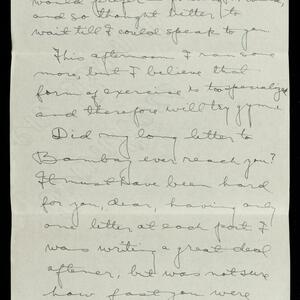 and so thought better to
wait till I could speak to you
This afternoon I ran some
more, but I believe that
form of exercise is too specialized
and therefore will try gym
Did my long letter to
Bombay ever reach you?
It must have been hard
for you, dear, having only
one letter at each port. I
was writing a great deal
oftener, but was not sure
how fast you were